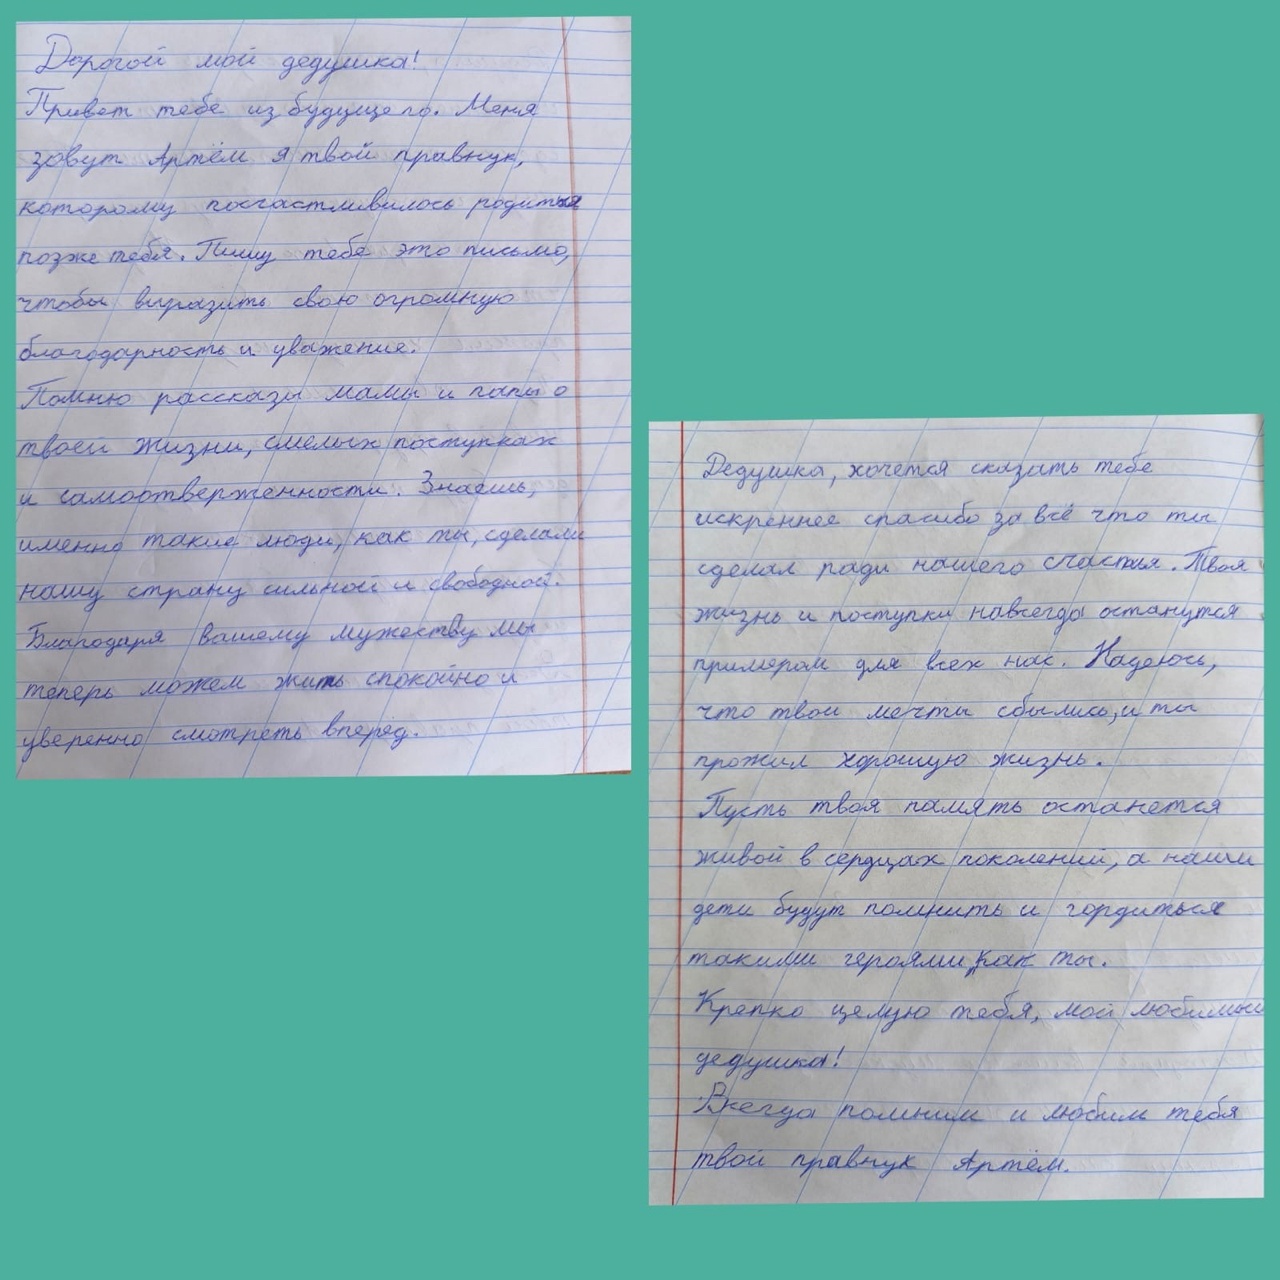 Дорогой мой дедушка!
Привет тебе из будущего. Меня
зовут Артём я твой правнук,
которому посчастливилось родиться
позже тебя. Пишу тебе это письмо,
чтобы выразить свою огромную
благодарность и уважение.
Помню рассказы мамы и папы о
твоей жизни, смелых поступках
и самоотверженности. Знаешь,
именно такие люди, как ты, сделали
нашу страну сильной и свободной.
Благодаря вашему мужеству мы
теперь можем жить спокойно и
уверенно смотреть вперёд.
Дедушка, хочется сказать тебе
искреннее спасибо за всё что ты
сделал ради нашего счастья. Твоя
жизнь и поступки навсегда останутся
примером для всех нас. Надеюсь,
что твои мечты сбылись, и ты
прожил хорошую жизнь.
Пусть твоя память останется
живой в сердцах поколений, а наши
дети будут помнить и гордиться
такими героями, как ты.
Крепко целую тебя, мой любимый
дедушка!
Всегда помним и любим тебя
твой правнук Артём.